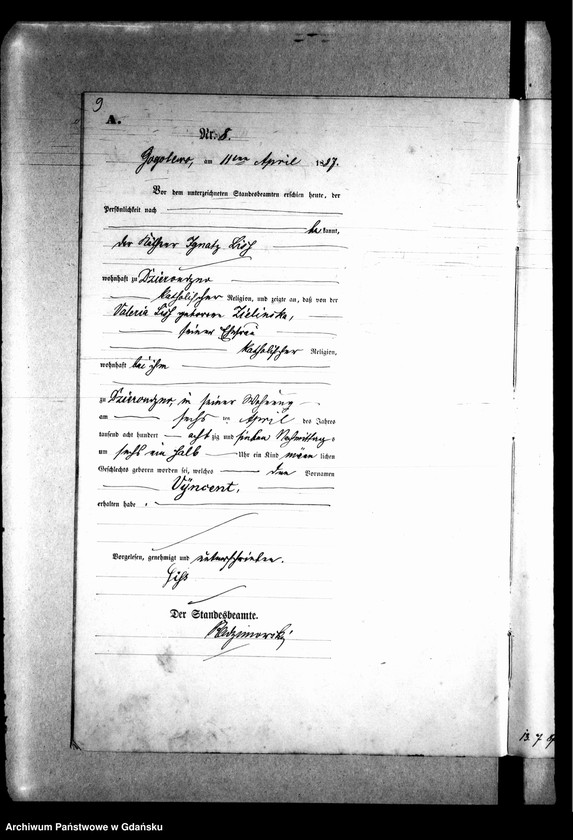 9
A.
Nr. 8.
am 11ten April 1887.
Vor dem unterzeichneten Standesbeamten erschien heute, der
Persönlichkeit nach
be kannt,
der Käthner Ignatz
wohnhaft zu
katholischer Religion, und zeigte an, daß von der
Valeria geborene Zielinska,
seiner Ehefrau
katholischer Religion,
wohnhaft bei ihm
zu in seiner Wohnung
am sechs ten April des Jahres
tausend acht hundert acht zig und sieben Nachmittags
um sechs ein halb Uhr ein Kind männ lichen
Geschlechts geboren worden sei, welches den Vornamen
Vÿncent,
erhalten habe.
Vorgelesen, genehmigt und unterschrieben.
Der Standesbeamte.
13 7
Archiwum Państwowe w Gdańsku